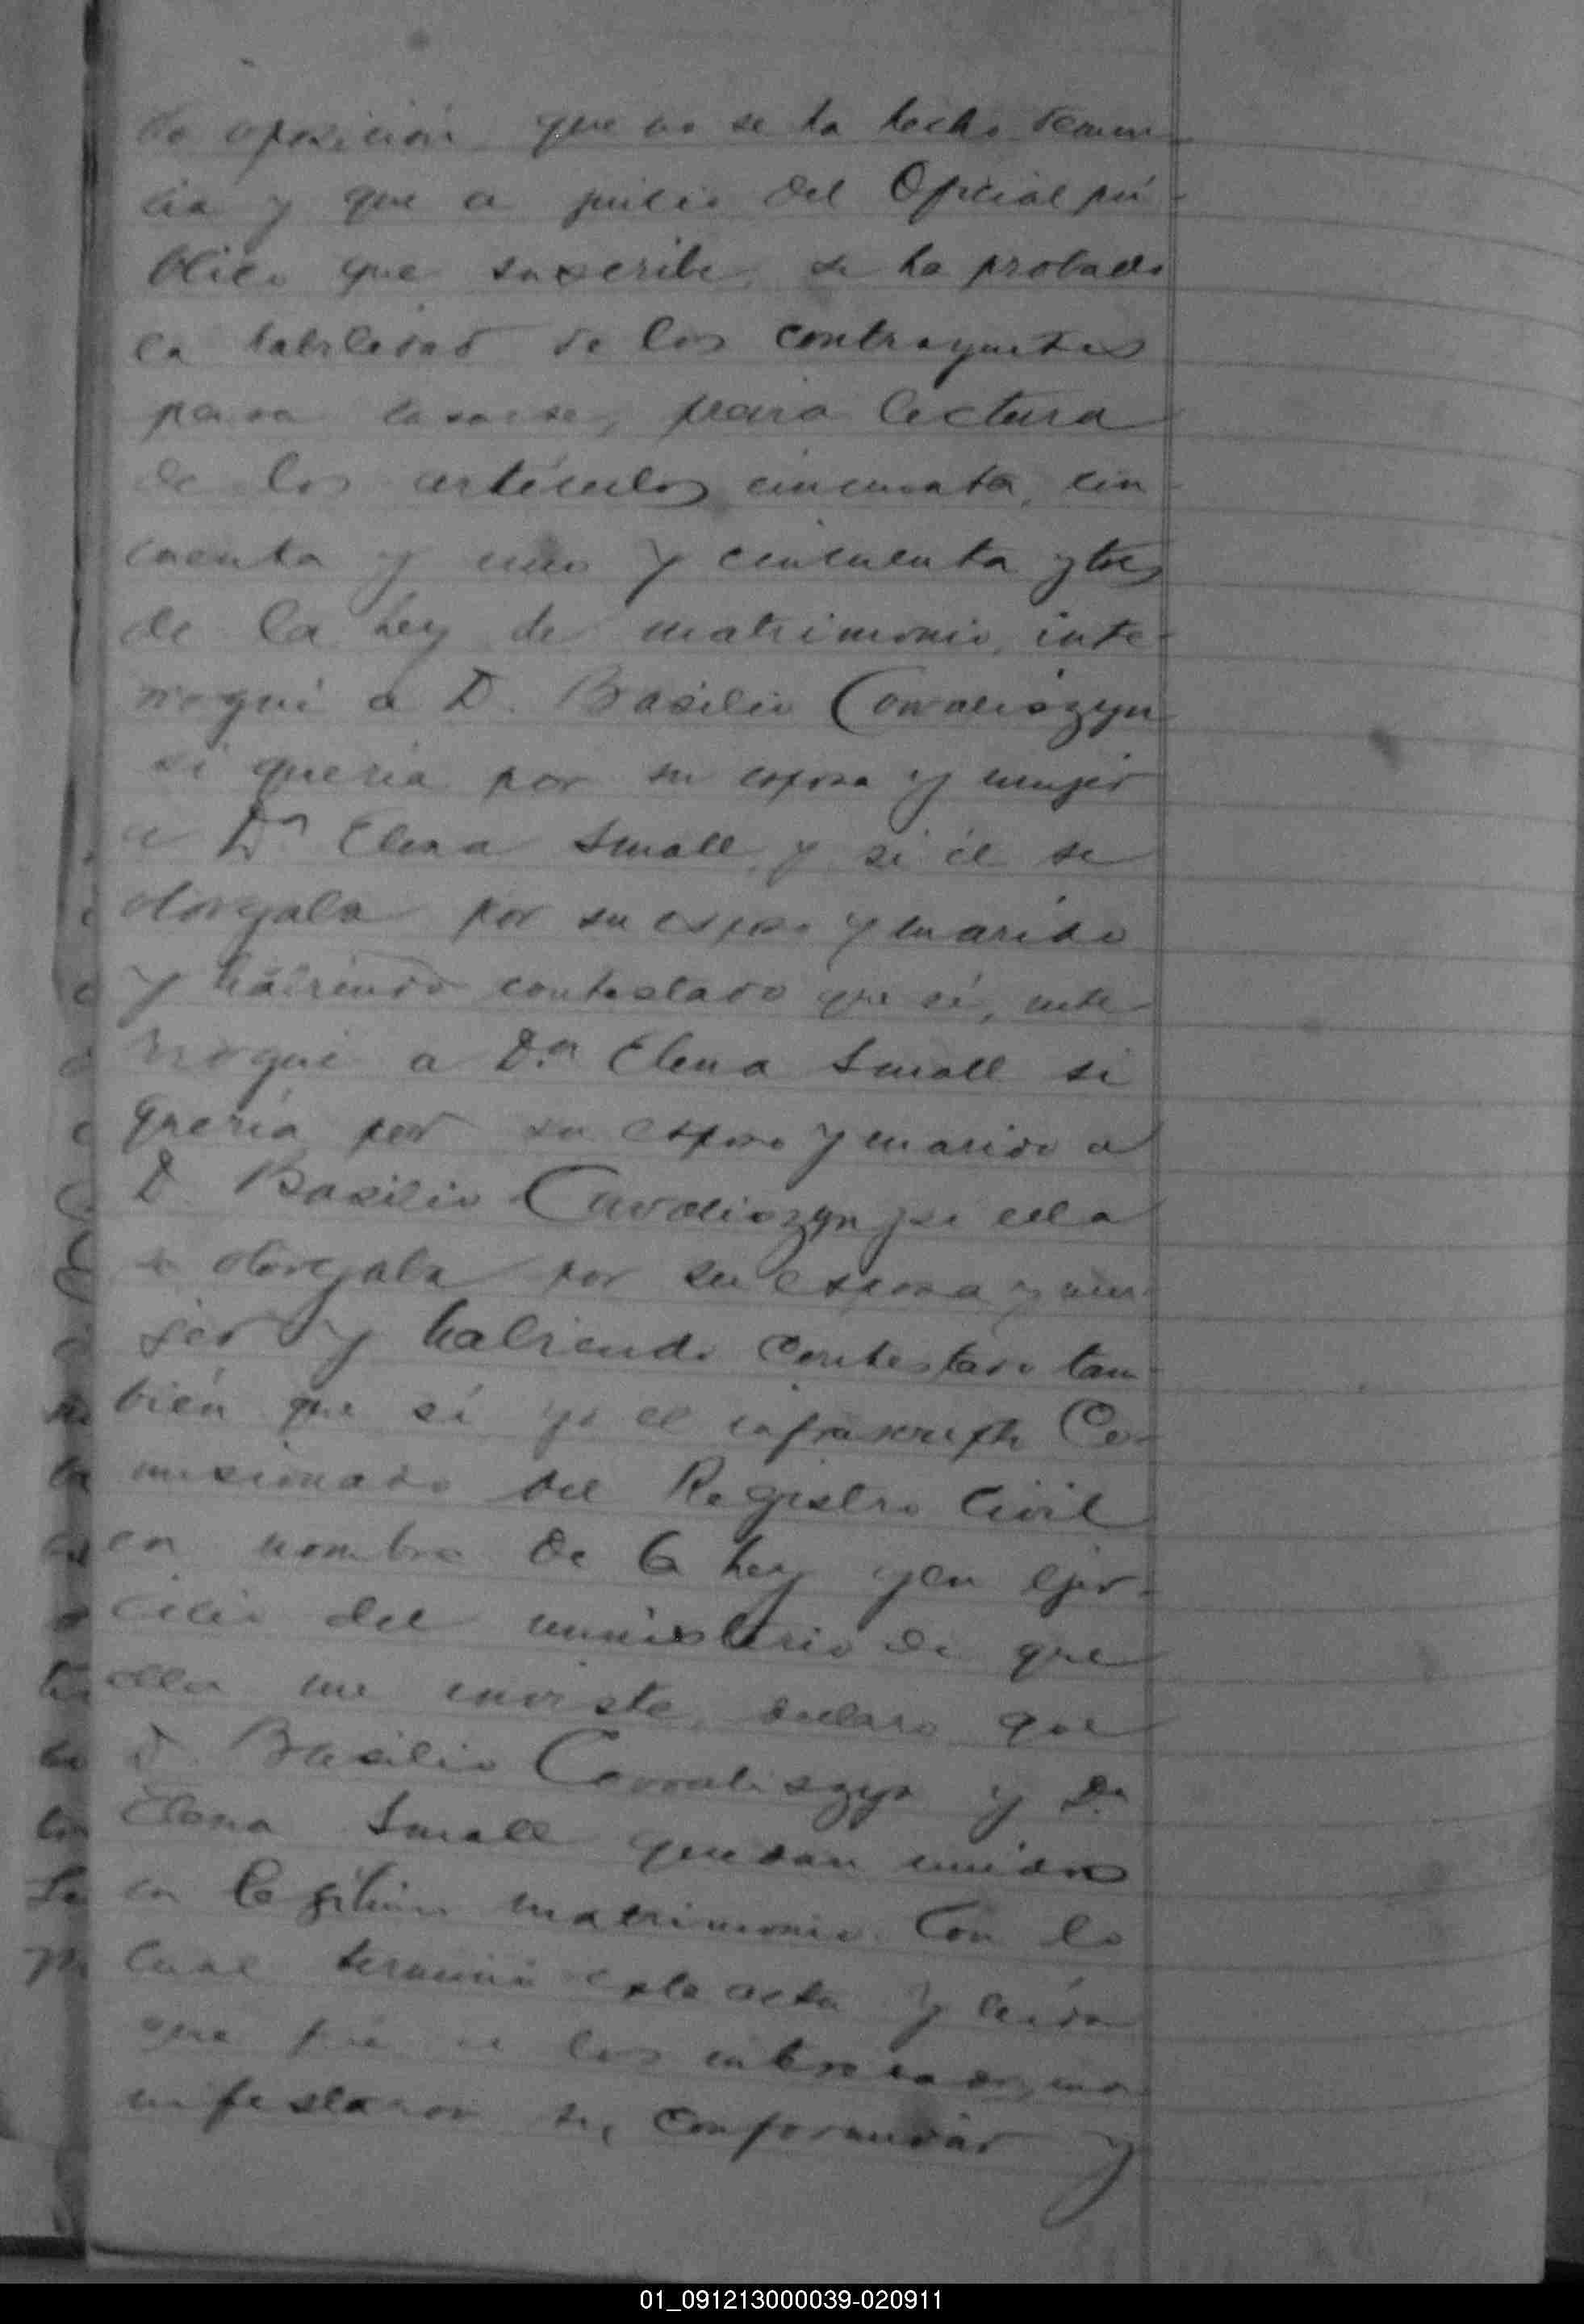 do oposición que no se ha hecho denun-
cia y que a juicio del Oficial pú-
blico que suscribe, se ha probado
la habilidad de los contrayentes
para casarse, previa lectura
de los artículos cincuenta, cin-
cuenta y uno y cincuenta y tres
de la Ley de matrimonio, inte-
rrogué a D. Basilio Cowaliszyn
si quería por su esposa y mujer
a Dª Elena Small, y si él se
otorgaba por su esposo y marido
y habiendo contestado que sí, inte-
rrogué a D.ª Elena Small si
quería por su esposo y marido a
D. Basilio Cowaliszyn y si ella
se otorgaba por su esposa y mu-
jer y habiendo contestado tam-
bién que sí yo el infrascripto Co-
misionado del Registro Civil
en nombre de la Ley y en ejer-
cicio del ministerio de que
ella me inviste, declaro que
D. Basilio Cowaliszyn y D.ª
Elena Small quedan unidos
en legítimo matrimonio. Con lo
cual terminó este acta y leída
que fué a los interesados, ma-
nifestaron su conformidad y
01_091213000039-020911